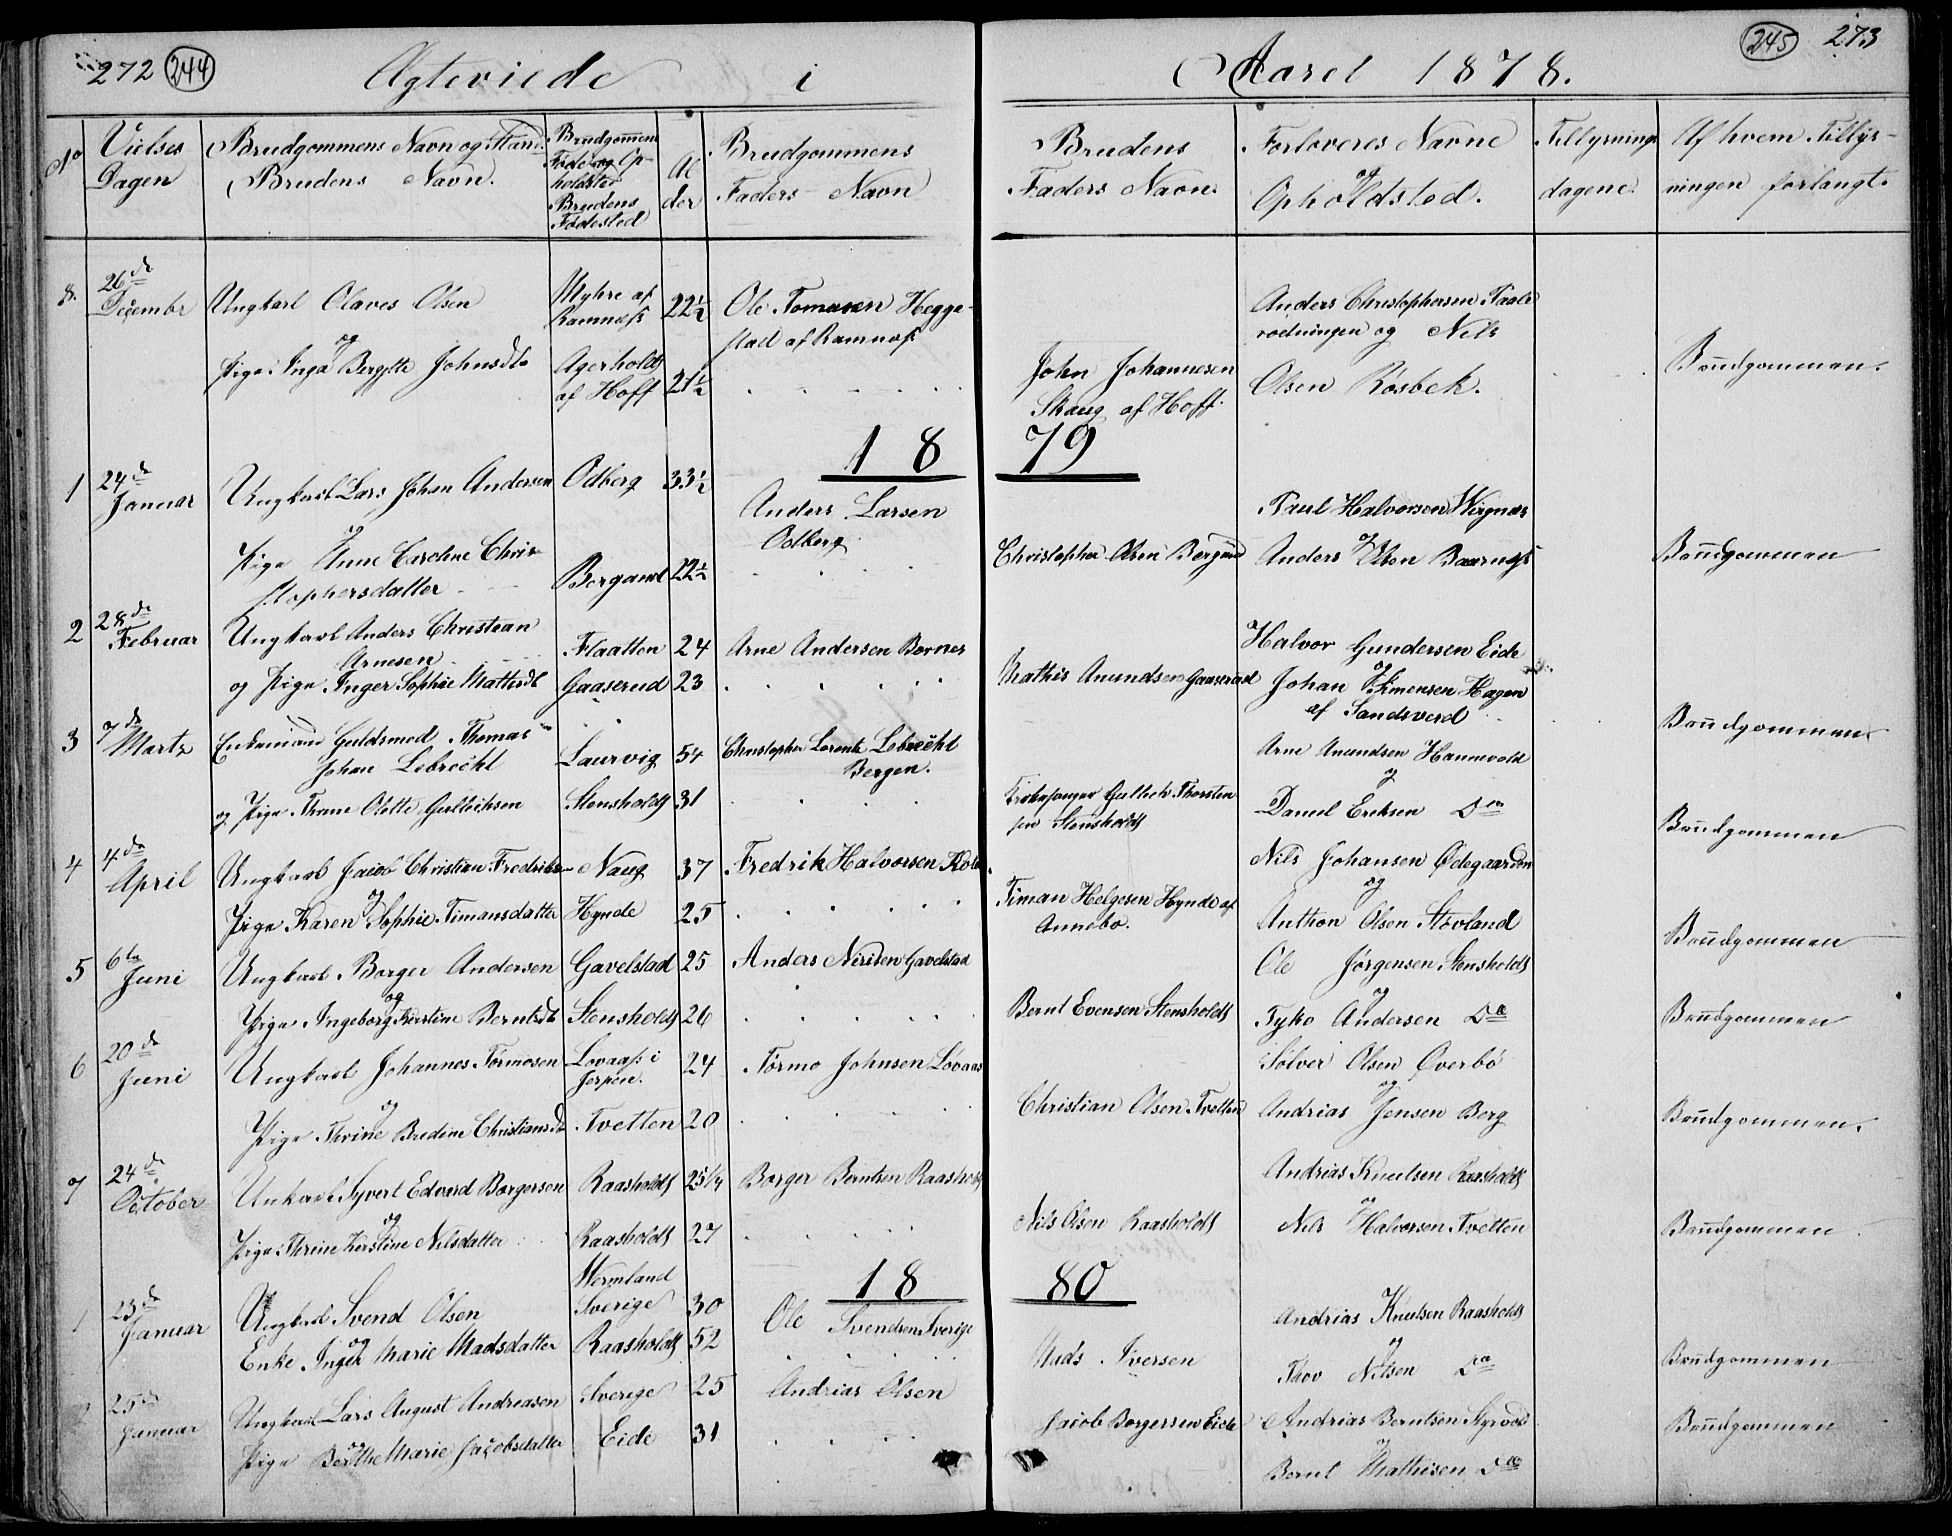 272 244
Ægteviede i
Aaret 1878.
245 273
No
Vielses Dagen
Brudgommens Navn og Stand.
Brudens Navn.
Brudgommens
Føde og Op-
holdsted
Brudens
Fødested
Al
der
Brudgommens
Faders Navn
Brudens
Faders Navn.
Forloveres Navne
og
Opholdsted.
Tillysnings
dagene.
Af hvem Tillys-
ningen forlangt.
8. 26de Decembr
Ungkarl Olaves Olsen
Myhre af
Ramnæss
22½
Ole Tomasen Hegge-
stad af Ramnæs
Anders Christophersen Paale
rødningen og Nils
Olsen Rosbek.
og
Pige Inga Bergitte Johnsdtr
Agerholdt
af Hoff
21½
John Johannesen
Skaug af Hoff.
Brudgommen.
1879
1 24de Januar
Ungkarl Lars Johan Andersen
Odberg
33½
Anders Larsen
Odberg
Paul Halvorsen Wegnæs
og
Pige Anne Caroline Chris-
stophersdatter
Bergand
22½
Christopher Olsen Bergand
og
Anders Olsen Baarnæss
Brudgommen
2 28de Februar
Ungkarl Anders Christian
Arnesen
Flaatten
24
Arne Andersen Bornes
Halvor Gundersen Eide
og
og Pige Inger Sophie Mattisdt
Gaaserud
23
Mathis Anundsen Gaaserud
Johan Simensen Hagen
af Sandsverd
Brudgommen
3 7de Marts
Enkemand Guldsmed Thomas
Johan Lebrecht
Laurvig
54
Christopher Lorentz Lebrecht
Bergen.
Arne Anundsen Hannevold
og
og Pige Thrane Olette Gulliksen
Stensholdt
31
Kirkesanger Gullek Thorsten
sen Stensholdt
Daniel Eriksen Do
Brudgommen
4 4de April
Ungkarl Jacob Christian Fredriksen
Naug
37
Fredrik Halvorsen
Nils Johansen Ødegaarden
og
og
Pige Karen Sophie Timansdatter
Hynde
25
Timan Helgesen Hynde af
Annebo.
Anthon Olsen Støvland
Brudgommen
5 6te Juni
Ungkarl Borger Andersen
Gavelstad
25
Anders Nirisen Gavelstad
Ole Jørgensen Stensholdt
og
og
Pige Ingeborg Kirstine Berntsdt
Stensholdt
26
Bernt Evensen Stensholdt
Tyko Andersen Do
Brudgommen
6 20de Juni
Ungkarl Johannes Tormosen
Lovaass i
Jerpen.
24
Tormo Johnsen Lovaas
Sølver Olsen Øverbø
og
og
Pige Thrine Bredine Christiansdt
Tvetten
20
Christian Olsen Tvetten
Andrias Jensen Berg
Brudgommen.
7 24de October
Unkarl Syvert Edvard Borgersen
Raasholdt
25¼
Borger Berntsen Raasholdt
Andrias Knutsen Raasholdt
og
og
Pige Thrine Kirstine Nilsdatter
Raasholdt
27
Nils Olsen Raasholdt
Nils Halvorsen Tvetten
Brudgommen
1880
1 23de Januar
Ungkarl Svend Olsen
Wermland
Sverige
30
Ole Svendsen Sverige
Andrias Knutsen Raasholdt
og
og
Enke Inger Marie Madsdatter
Raasholdt
52
Mads Iversen
Thov Nilsen Do
Brudgommen
2 25de Januar
Ungkarl Lars August Andreasen
Sverige
25
Andrias Olsen
Andrias Berntsen Styrvol
og
og
Pige Berthe Marie Jacobsdatter
Eide
31
Jacob Borgersen Eide
Bernt Mathisen Do
Brudgommen